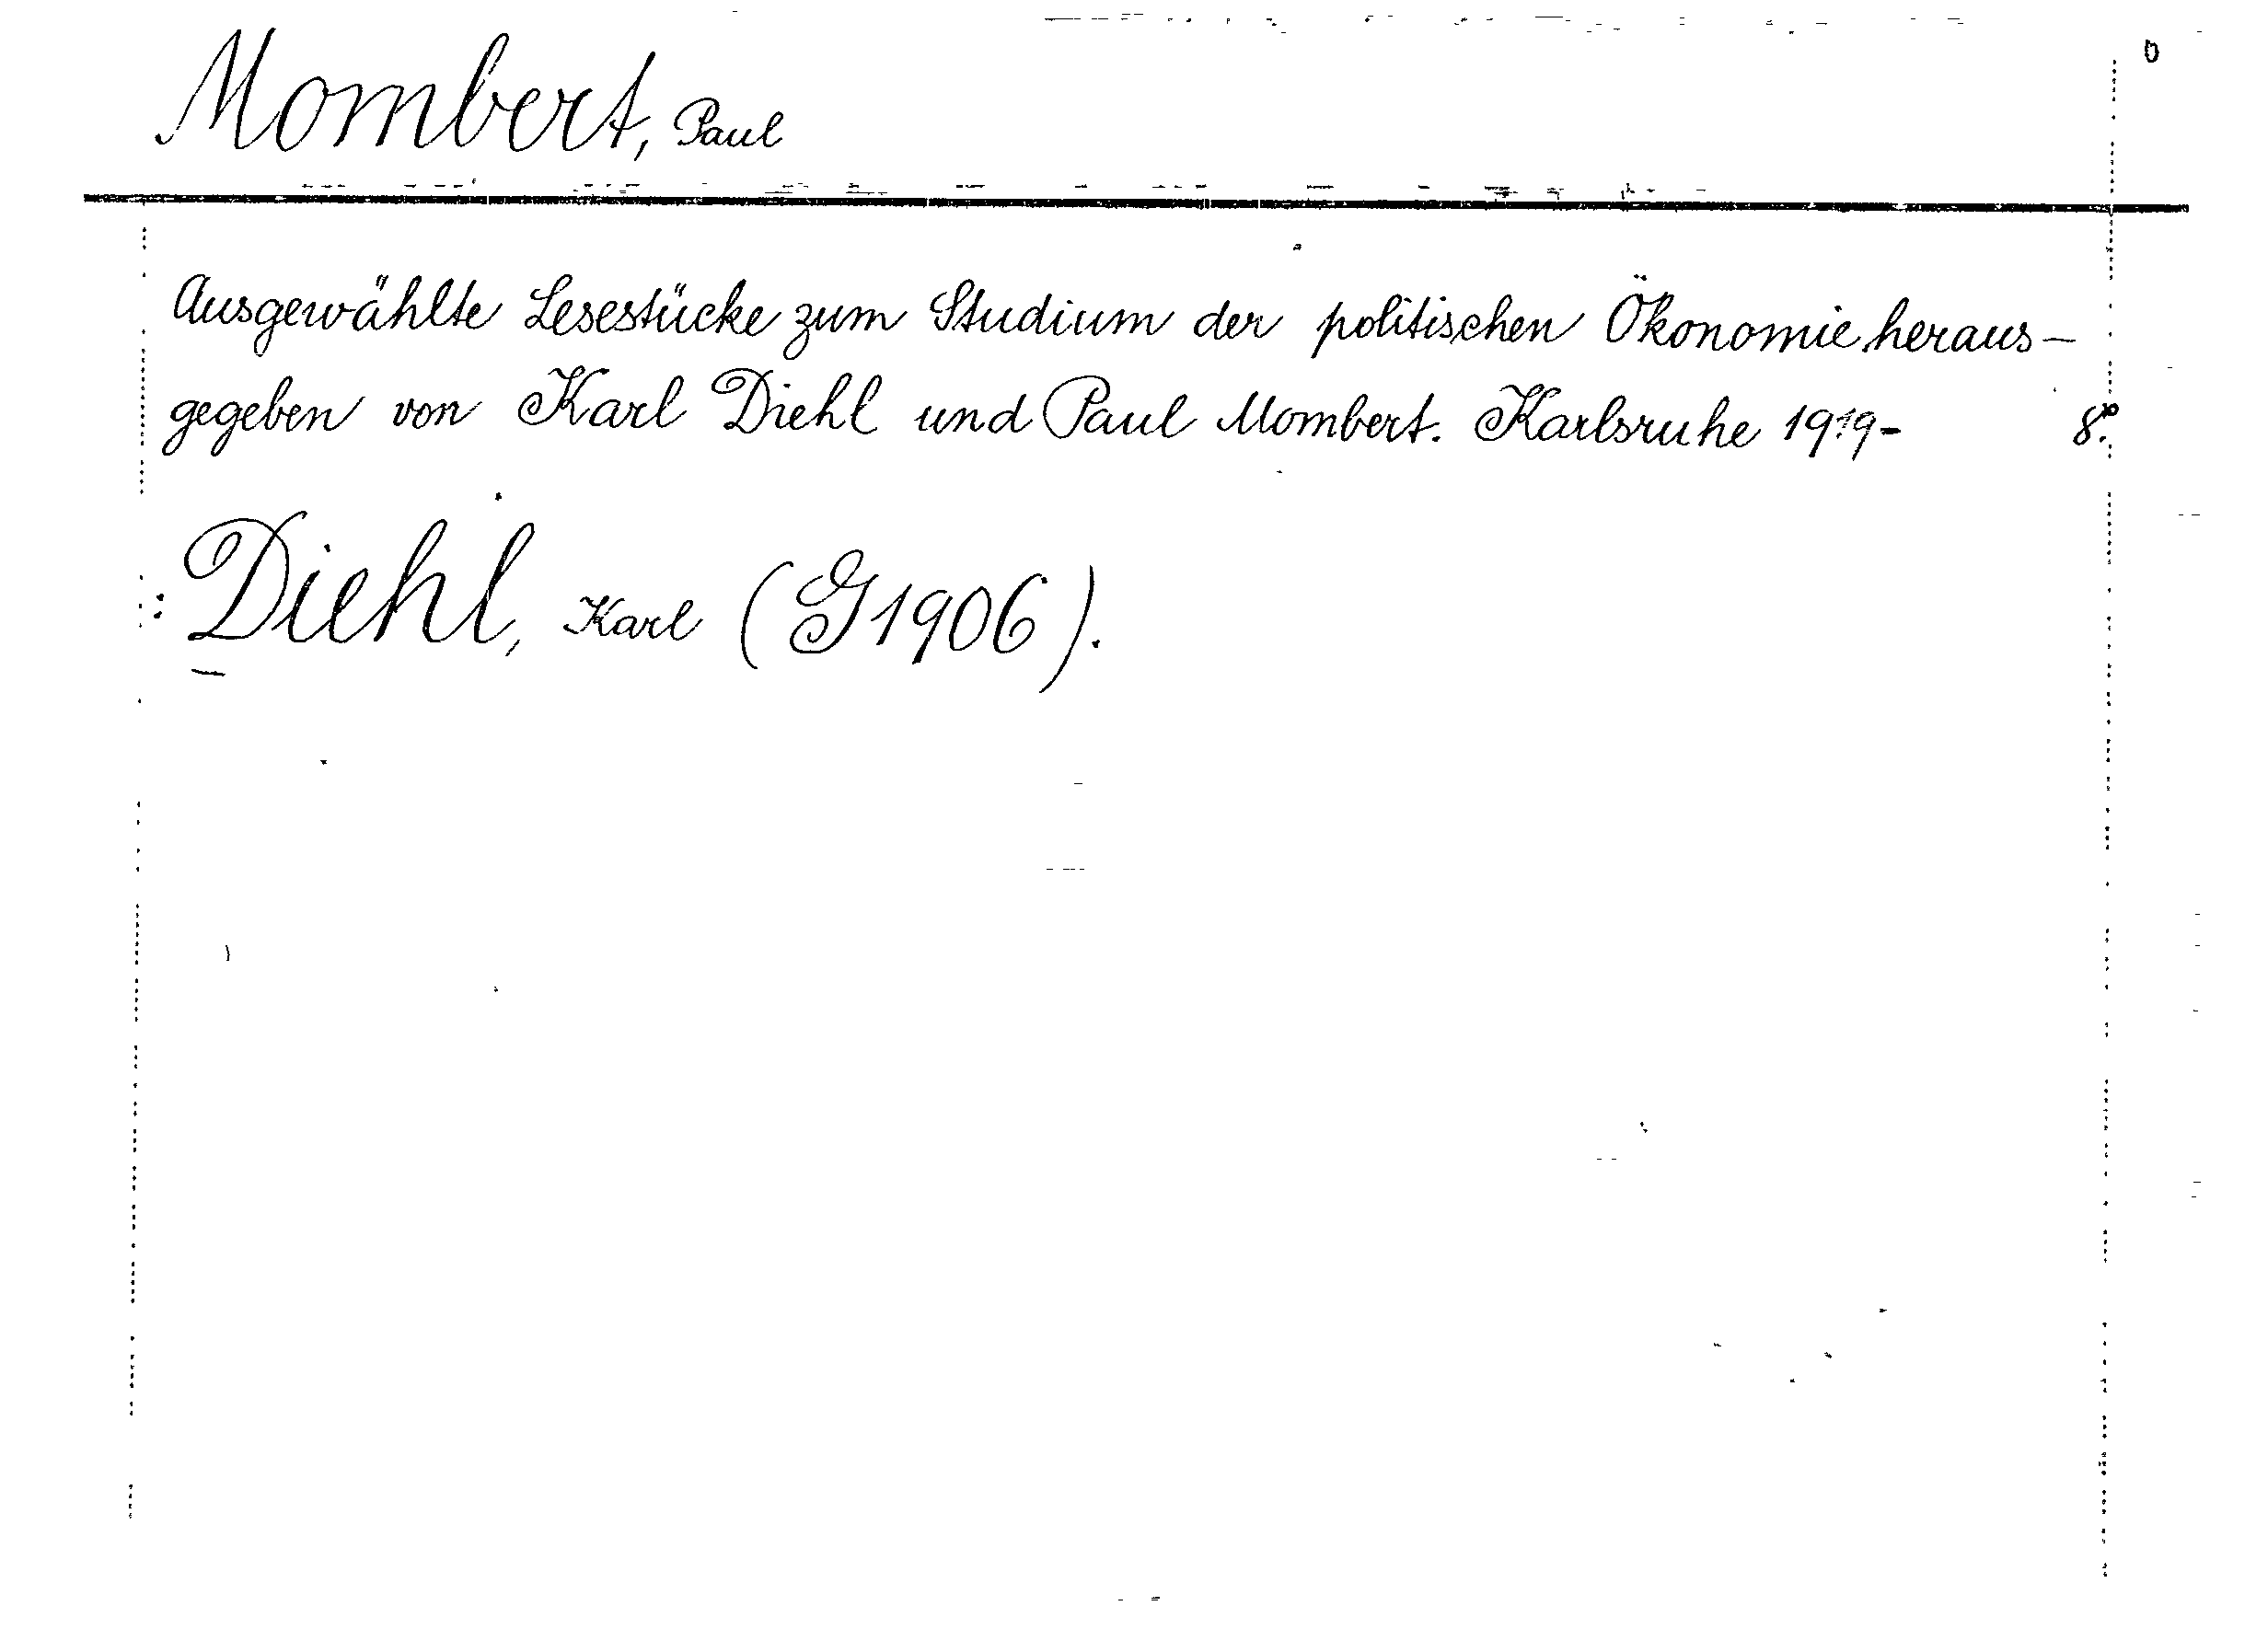 0
Mombert, Paul
Ausgewählte Lesestücke zum Studium der politischen Ökonomie heraus-
gegeben von Karl Diehl und Paul Mombert. Karlsruhe 1919- 8°.
: Diehl, Karl (G1906).